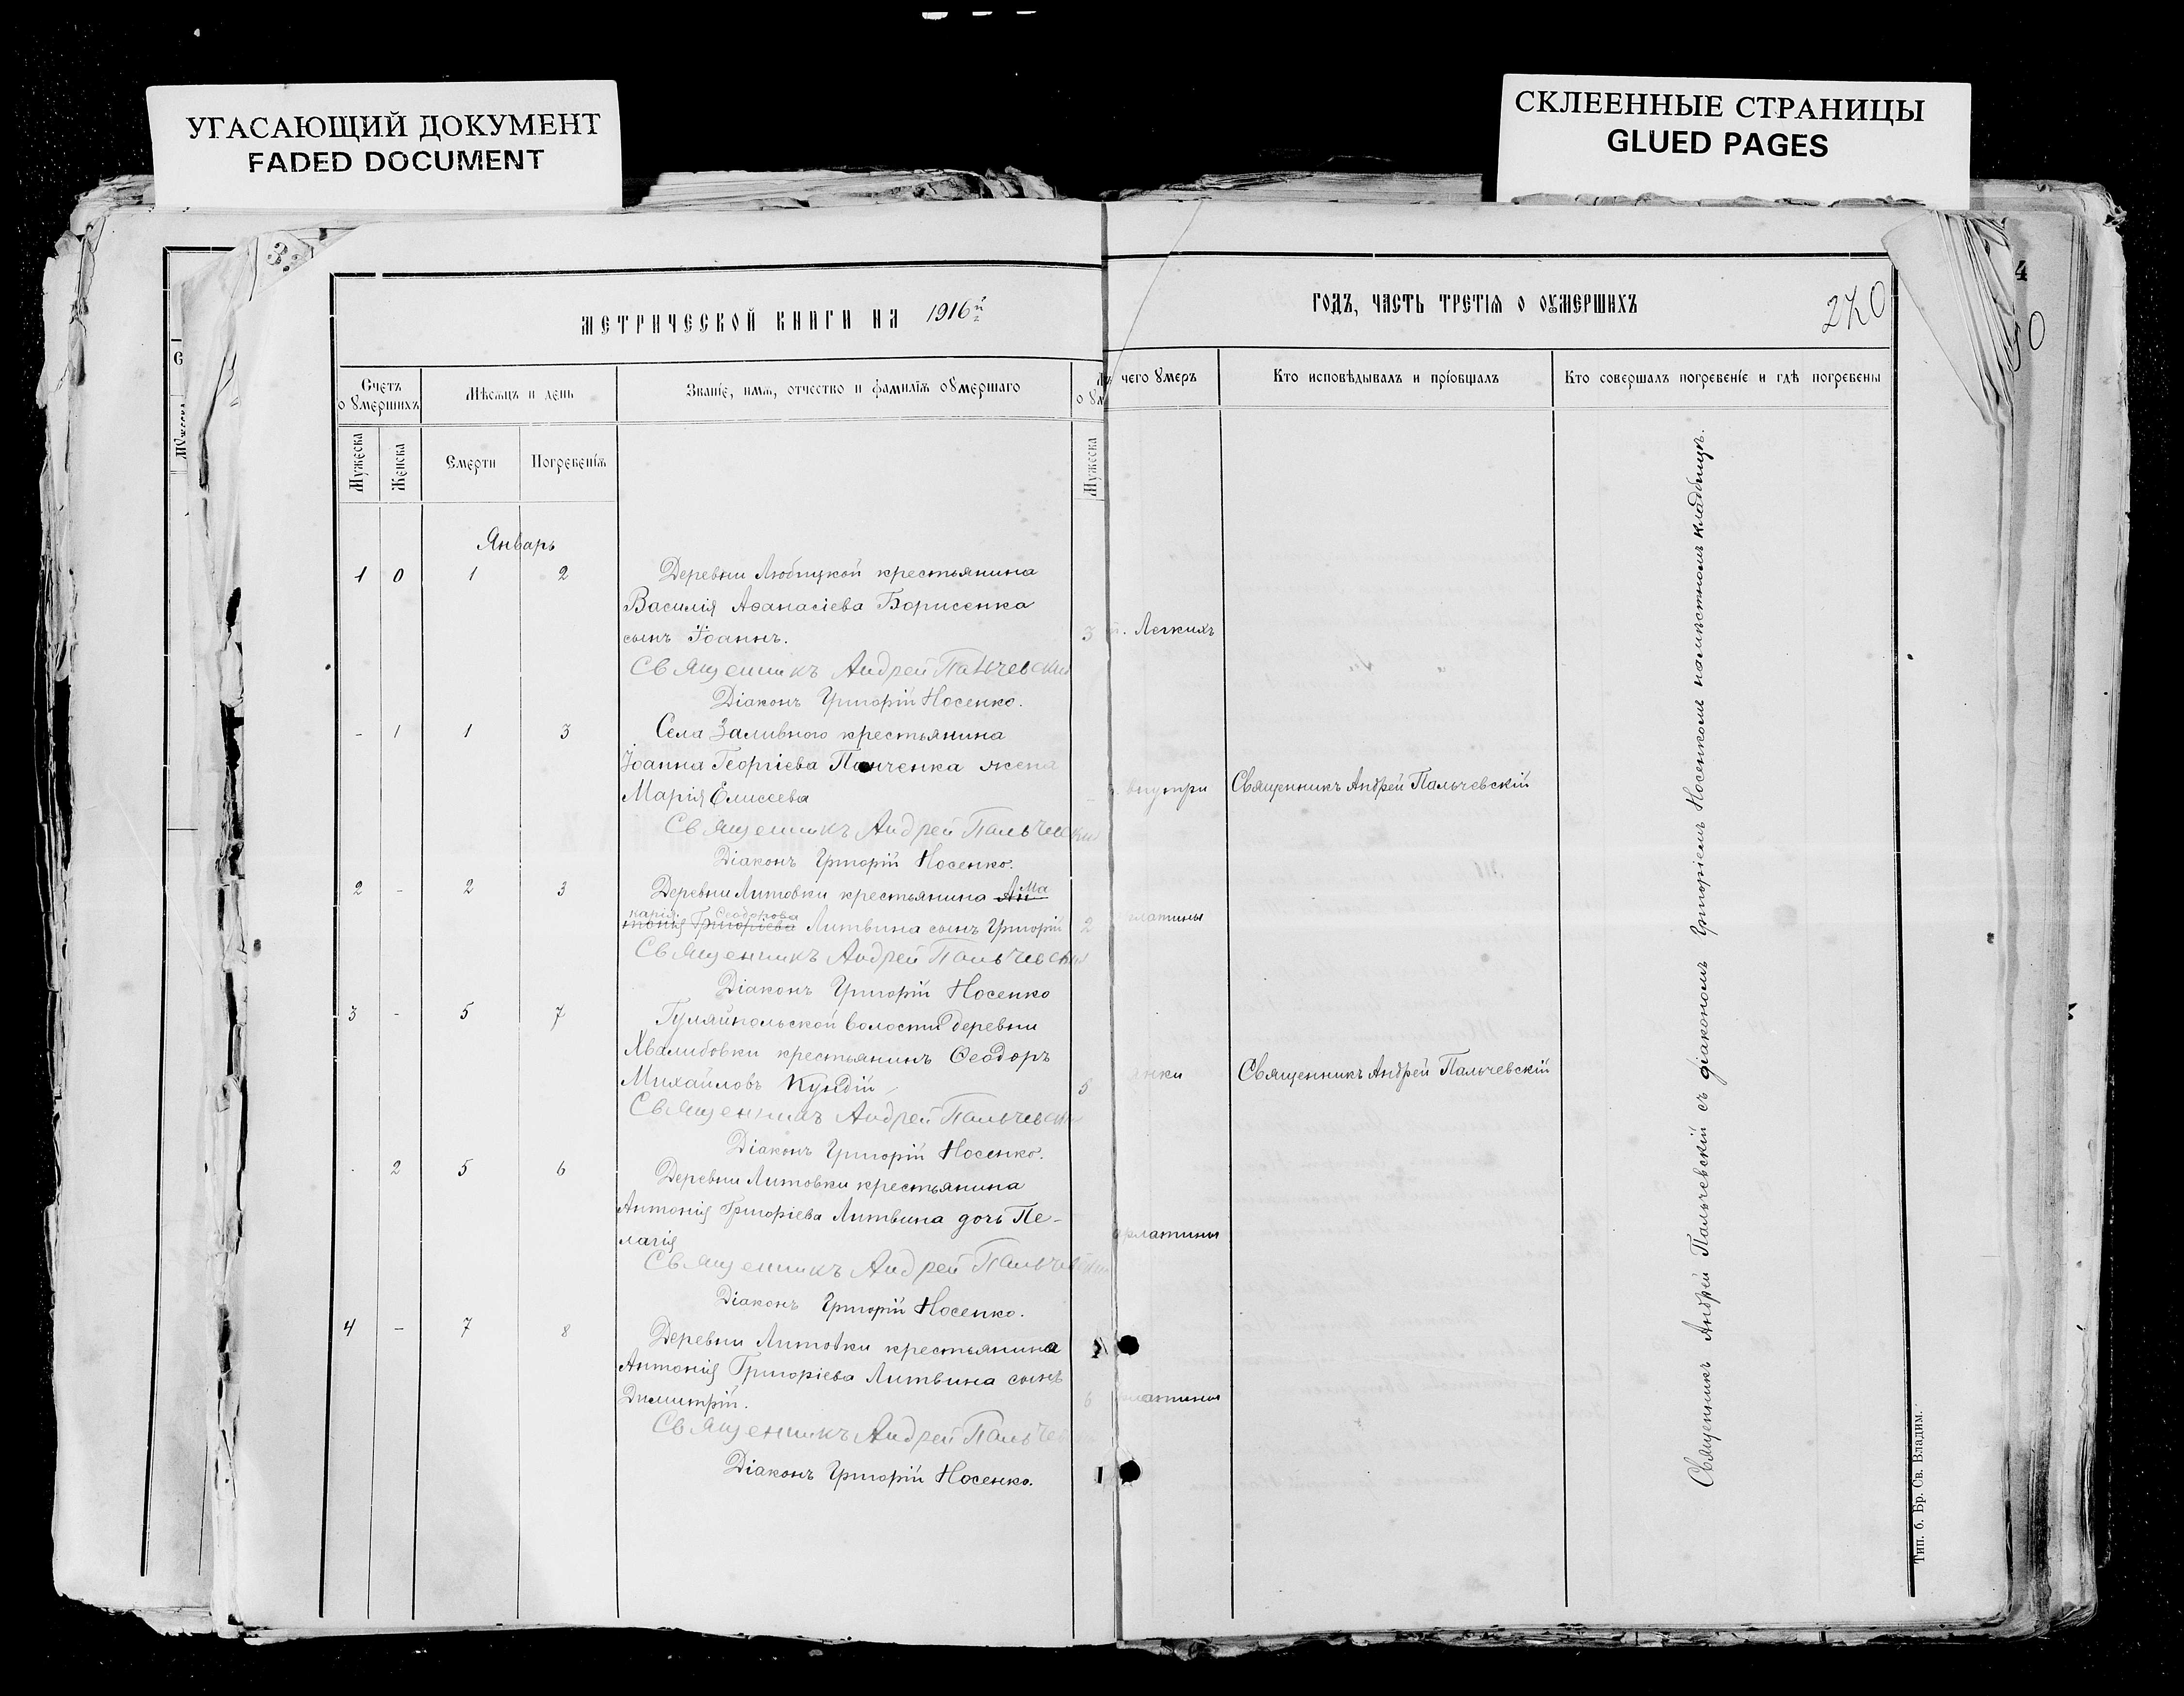 УГАСАЮЩИЙ ДОКУМЕНТ
FADED DOCUMENT
СКЛЕЕННЫЕ СТРАНИЦЫ
GLUED PAGES
МЕТРИЧЕСКОЙ КНИГИ НА 1916й
ГОДЪ, ЧАСТЬ ТРЕТІЯ О ОУМЕРШИХЪ
270
Счетъ оумершихъ
Мѣсяцъ и день
Званіе, имя, отчество и фамилія оумершаго
чего умеръ
Кто исповѣдывалъ и пріобщалъ
Кто совершалъ погребеніе и гдѣ погребены
Мужеска
Женска
Смерти
Погребенія
Мужеска
Январь
1 0 1 2 Деревни Любицкой крестьянина
Василія Аѳанасіева Борисенка
сынъ Іоаннъ. 3 Легкихъ
Священникъ Андрей Пальчевскій
Діаконъ Григорій Носенко.
- 1 1 3 Села Заливного крестьянина
Іоанна Георгіева Панченка жена
Марія Елисеева - внутри Священникъ Андрей Пальчевскій
Священникъ Андрей Пальчевскій
Діаконъ Григорій Носенко.
2 - 2 3 Деревни Литовки крестьянина Ан Ма
карія Ѳеодорова
тонія Григоріева Литвина сынъ Григорій 2 латины
Священникъ Андрей Пальчевскій
Діаконъ Григорій Носенко
3 - 5 7 Гуляйпольской волости деревни
Хвалибовки крестьянинъ Ѳеодоръ
Михайловъ Кундій 5 нки Священникъ Андрей Пальчевскій
Священникъ Андрей Пальчевскій
Діаконъ Григорій Носенко.
2 5 6 Деревни Литовки крестьянина
Антонія Григоріева Литвина дочь Пе-
лагія рлатины
Священникъ Андрей Пальчевскій
Діаконъ Григорій Носенко.
4 - 7 8 Деревни Литовки крестьянина
Антонія Григоріева Литвина сынъ
Димитрій. 6 латины
Священникъ Андрей Пальчев
Діаконъ Григорій Носенко.
Священникъ Андрей Пальчевскій съ діакономъ Григоріемъ Носенкомъ на мѣстномъ кладбищѣ.
Тип. б. Бр. Св. Владим.